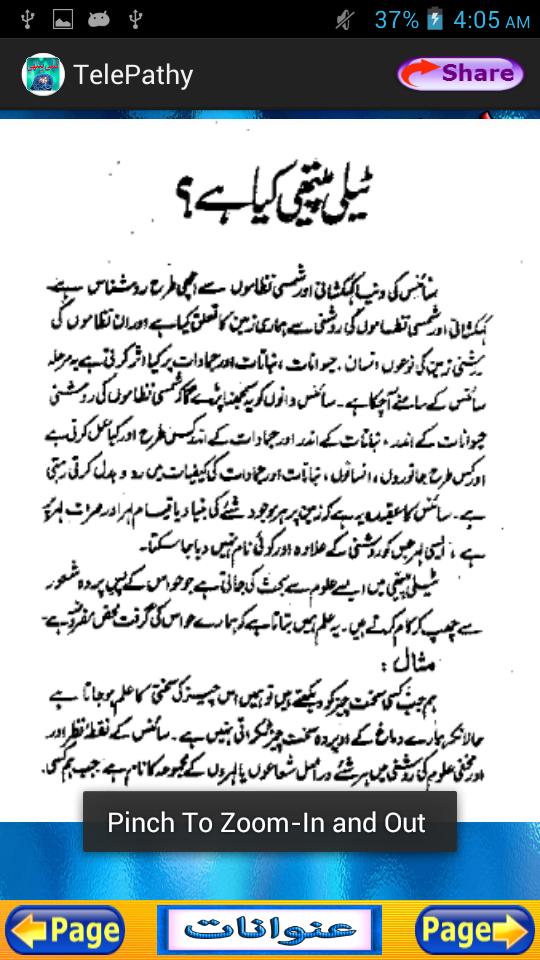 37% 4:05 AM
TelePathy
Share
ٹیلی پیتھی کیا ہے؟
سائنس کی دنیا کہکشانی اور شمسی نظاموں سے اچھی طرح روشناس ہے۔
کہکشانی اور شمسی نظاموں کی روشنی سے ہماری زمین کا تعلق کیا ہے اور ان نظاموں کی
روشنی زمین کی نوعوں انسان۔ حیوانات، نباتات اور جمادات پر کیا اثر کرتی ہے یہ مرحلہ
سائنس کے سامنے آچکا ہے۔ سائنس دانوں کو یہ سمجھنا پڑے گا کہ شمسی نظاموں کی روشنی
حیوانات کے اندر، نباتات کے اندر اور جمادات کے اندر کس طرح اور کیا عمل کرتی ہے
اور کس طرح جانوروں، انسانوں، نباتات اور جمادات کی کیفیات میں رد و بدل کرتی رہتی
ہے۔ سائنس کا عقیدہ یہ ہے کہ زمین پر ہر موجود شئے کی بنیاد یا قیام لہر اور صرف لہر پر
ہے، ایسی لہر جس کو روشنی کے علاوہ اور کوئی نام نہیں دیا جا سکتا۔
ٹیلی پیتھی میں ایسے علوم سے بحث کی جاتی ہے جو حواس کے پس پردہ شعور
سے چھپ کر کام کرتے ہیں۔ یہ علم ہمیں بتاتا ہے کہ ہمارے حواس کی گرفت محض مفروضہ ہے۔
مثال:
ہم جب کسی سخت چیز کو دیکھتے ہیں تو ہمیں اس چیز کی سختی کا علم ہو جاتا ہے
حالانکہ ہمارے دماغ کے اوپر وہ سخت چیز ٹکراتی نہیں ہے۔ سائنس کے نقطۂ نظر اور
اور مخفی علوم کی روشنی میں ہر شئے دراصل شعاعوں یا لہروں کے مجموعہ کا نام ہے۔ جب ہم کسی
Pinch To Zoom-In and Out
Page عنوانات Page